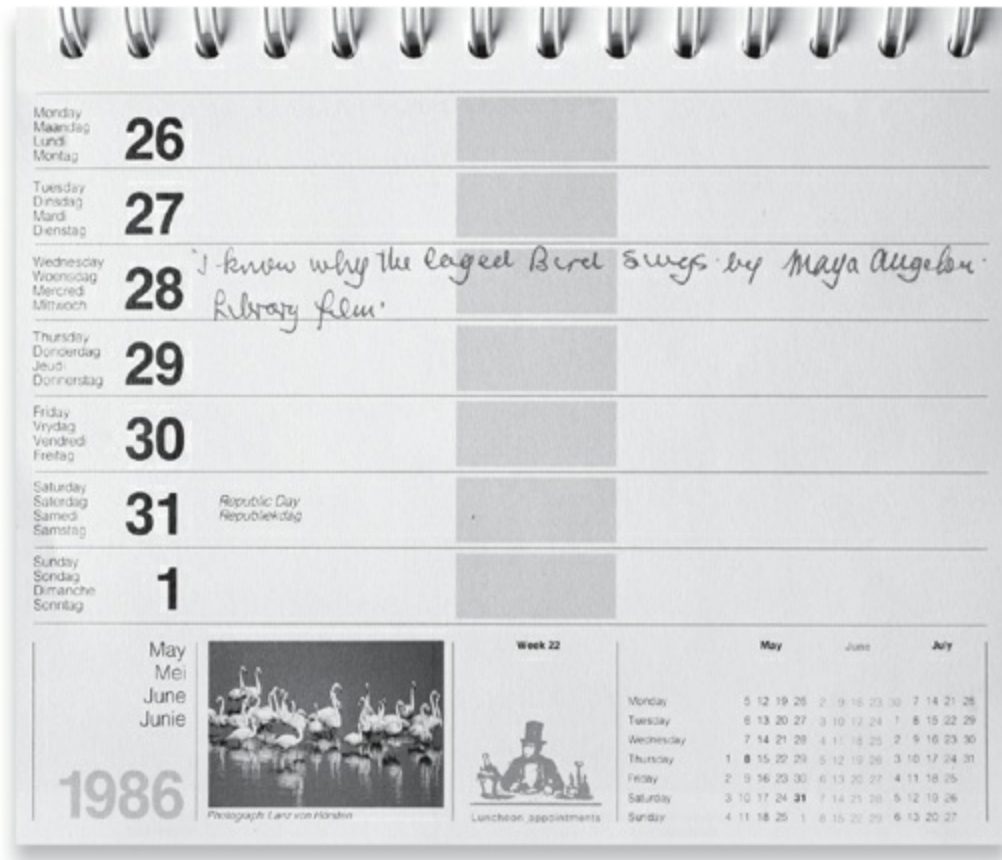 Monday
Maandag
Lundi
Montag
26
Tuesday
Dinsdag
Mardi
Dienstag
27
Wednesday
Woensdag
Mercredi
Mittwoch
28
'I know why the Caged Bird Sings by Maya Angelou.
Library film.
Thursday
Donderdag
Jeudi
Donnerstag
29
Friday
Vrydag
Vendredi
Freitag
30
Saturday
Saterdag
Samedi
Samstag
31
Republic Day
Republiekdag
Sunday
Sondag
Dimanche
Sonntag
1
May
Mei
June
Junie
1986
Photograph: Lanz von Hörsten
Week 22
Luncheon appointments
May June July
Monday 5 12 19 26 2 9 16 23 30 7 14 21 28
Tuesday 6 13 20 27 3 10 17 24 1 8 15 22 29
Wednesday 7 14 21 28 4 11 18 25 2 9 16 23 30
Thursday 1 8 15 22 29 5 12 19 26 3 10 17 24 31
Friday 2 9 16 23 30 6 13 20 27 4 11 18 25
Saturday 3 10 17 24 31 7 14 21 28 5 12 19 26
Sunday 4 11 18 25 1 8 15 22 29 6 13 20 27